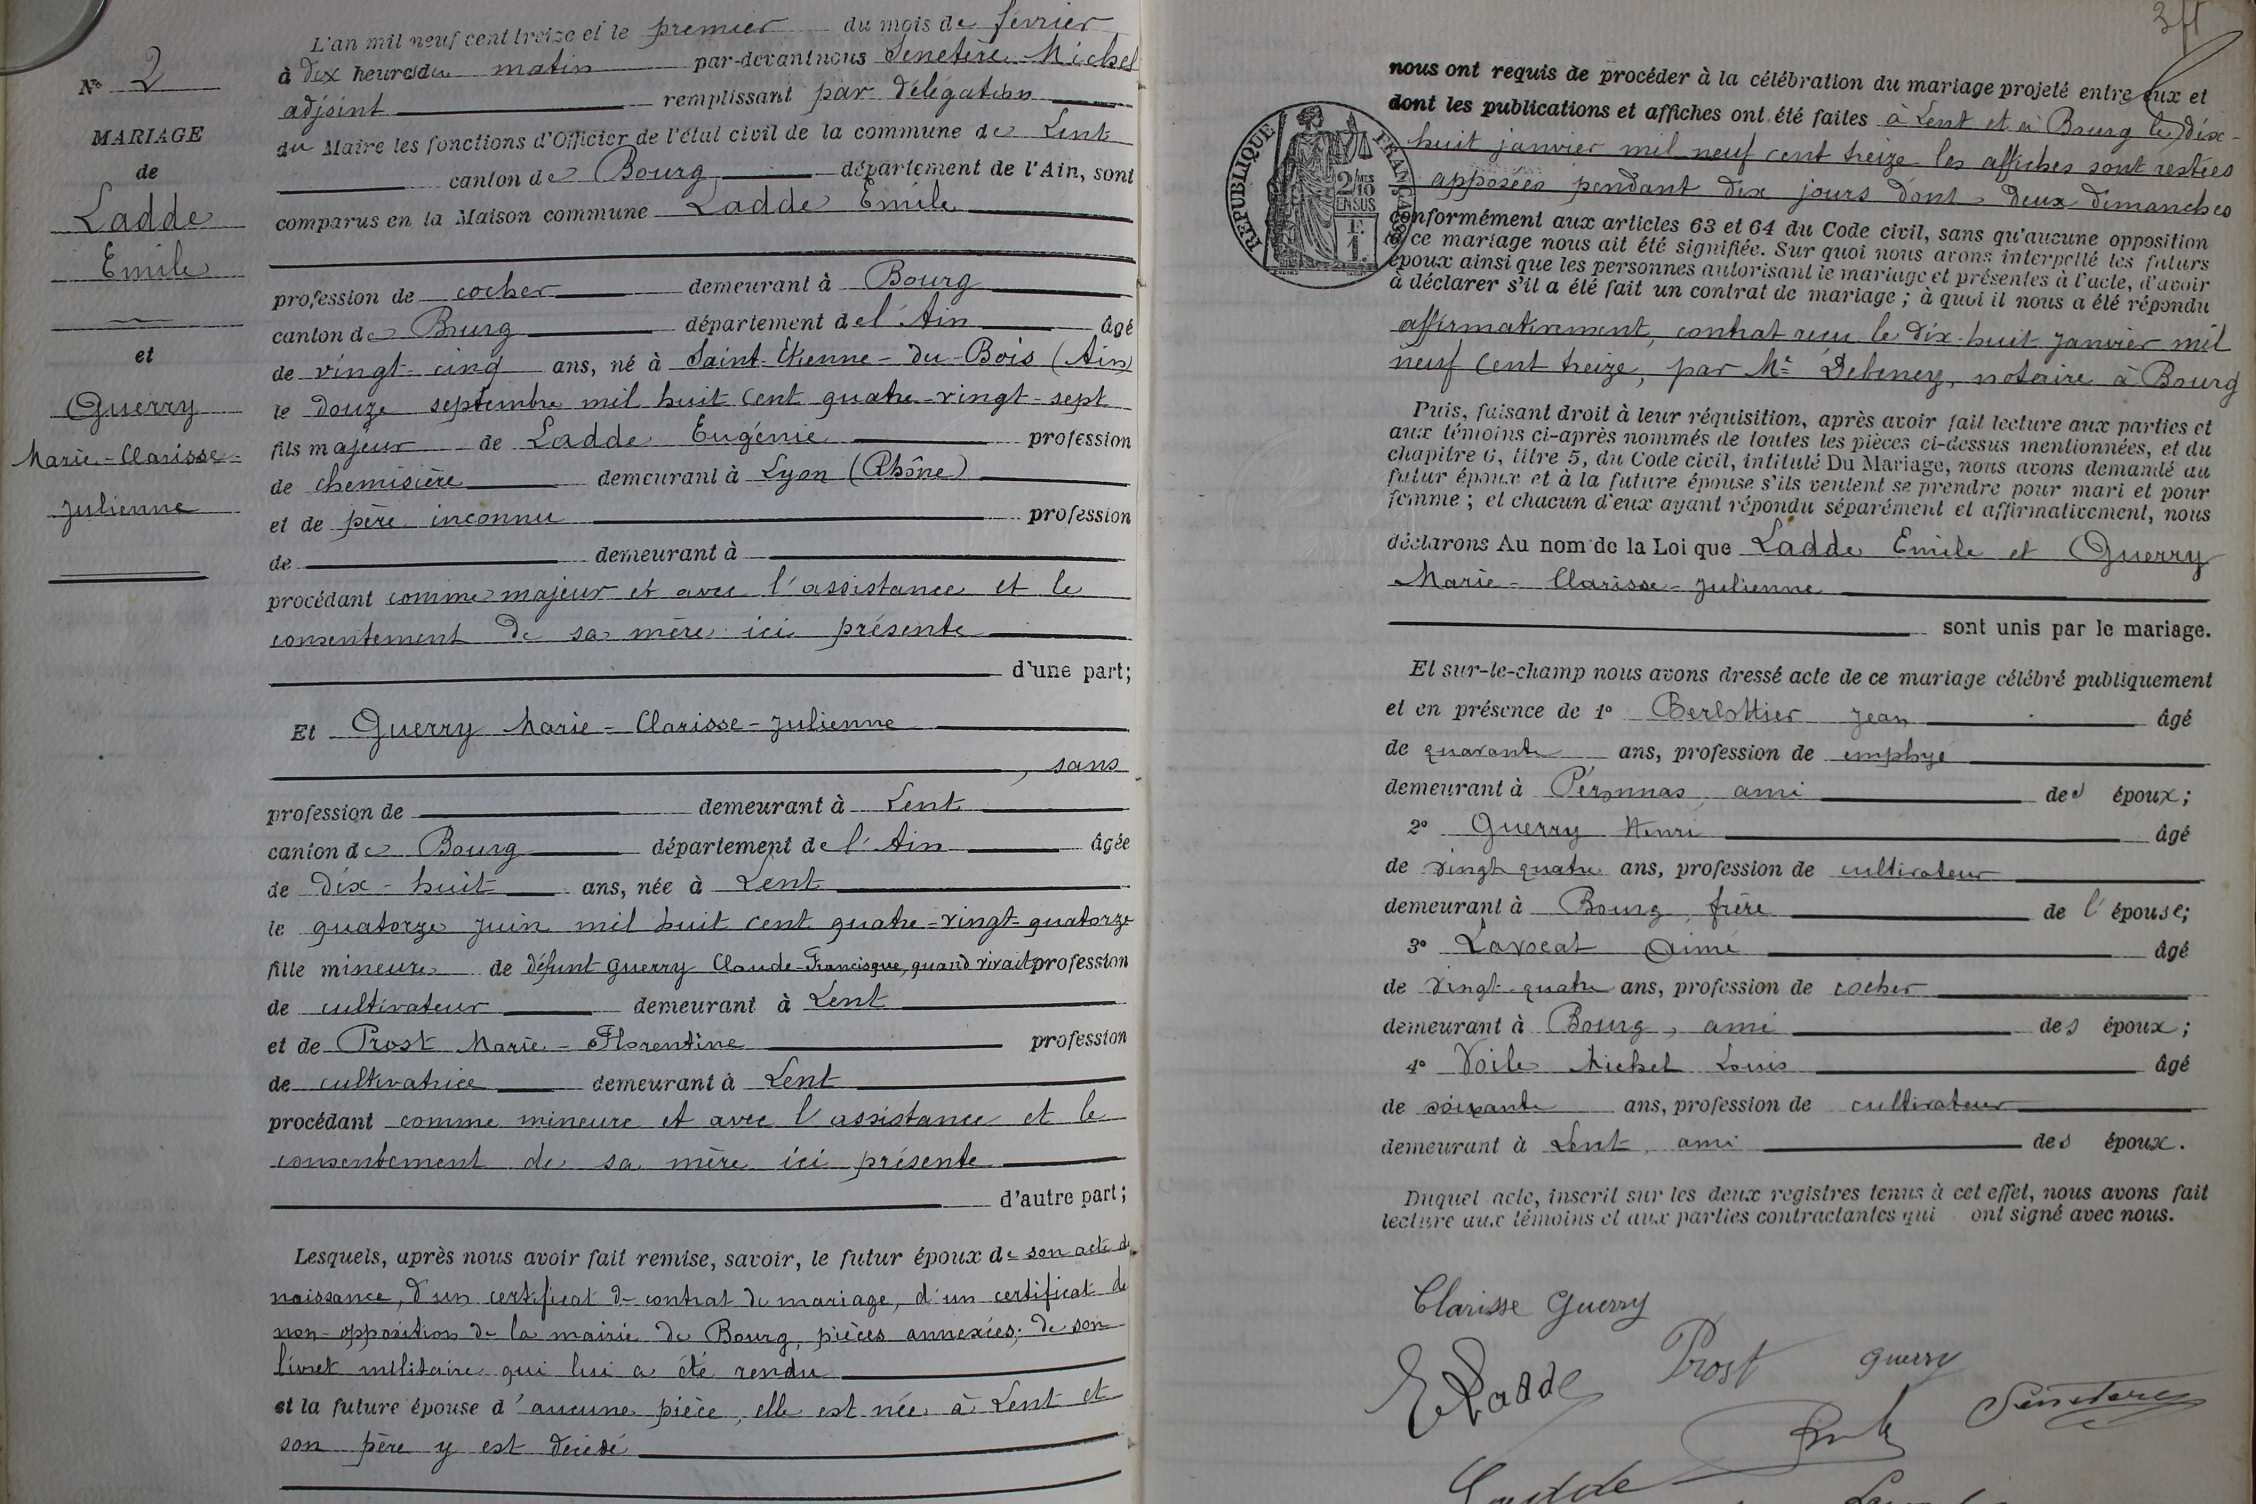 N° 2
MARIAGE
de
Ladde
Emile
et
Guerry
Marie-Clarisse-
Julienne
L'an mil neuf cent treize et le premier du mois de février
à dix heures du matin par-devant nous Senetère Michel
adjoint remplissant par délégation
du Maire les fonctions d'Officier de l'état civil de la commune de Lent
canton de Bourg département de l'Ain, sont
comparus en la Maison commune Ladde Emile
profession de cocher demeurant à Bourg
canton de Bourg département de l'Ain âgé
de vingt-cinq ans, né à Saint-Etienne-du-Bois (Ain)
le douze septembre mil huit cent quatre-vingt-sept
fils majeur de Ladde Eugénie profession
de chemisière demeurant à Lyon (Rhône)
et de père inconnu profession
de demeurant à
procédant comme majeur et avec l'assistance et le
consentement de sa mère ici présente
d'une part;
Et Guerry Marie-Clarisse-Julienne
, sans
profession de demeurant à Lent
canton de Bourg département de l'Ain âgée
de dix-huit ans, née à Lent
le quatorze juin mil huit cent quatre-vingt-quatorze
fille mineure de défunt Guerry Claude-Francisque, quand vivait profession
de cultivateur demeurant à Lent
et de Prost Marie-Florentine profession
de cultivatrice demeurant à Lent
procédant comme mineure et avec l'assistance et le
consentement de sa mère ici présente
d'autre part;
Lesquels, après nous avoir fait remise, savoir, le futur époux de son acte de
naissance, d'un certificat de contrat de mariage, d'un certificat de
non-opposition de la mairie de Bourg, pièces annexées; de son
livret militaire qui lui a été rendu
et la future épouse d'aucune pièce, elle est née à Lent et
son père y est décédé
nous ont requis de procéder à la célébration du mariage projeté entre eux et
dont les publications et affiches ont été faites à Lent et à Bourg le dix-
huit janvier mil neuf cent treize les affiches sont restées
apposées pendant dix jours dont deux dimanches
REPUBLIQUE FRANÇAISE
2/10
EN SUS
F.
1.
conformément aux articles 63 et 64 du Code civil, sans qu'aucune opposition
à ce mariage nous ait été signifiée. Sur quoi nous avons interpellé les futurs
époux ainsi que les personnes autorisant le mariage et présentes à l'acte, d'avoir
à déclarer s'il a été fait un contrat de mariage; à quoi il nous a été répondu
affirmativement, contrat reçu le dix-huit janvier mil
neuf cent treize, par Me Debeney, notaire à Bourg
Puis, faisant droit à leur réquisition, après avoir fait lecture aux parties et
aux témoins ci-après nommés de toutes les pièces ci-dessus mentionnées, et du
chapitre 6, titre 5, du Code civil, intitulé Du Mariage, nous avons demandé au
futur époux et à la future épouse s'ils veulent se prendre pour mari et pour
femme; et chacun d'eux ayant répondu séparément et affirmativement, nous
déclarons Au nom de la Loi que Ladde Emile et Guerry
Marie-Clarisse-Julienne
sont unis par le mariage.
Et sur-le-champ nous avons dressé acte de ce mariage célébré publiquement
et en présence de 1° Berlottier Jean âgé
de quarante ans, profession de employé
demeurant à Péronnas, ami des époux;
2° Guerry Henri âgé
de vingt quatre ans, profession de cultivateur
demeurant à Bourg, frère de l'épouse;
3° Lavocat Aimé âgé
de vingt-quatre ans, profession de cocher
demeurant à Bourg, ami des époux;
4° Voile Michel Louis âgé
de soixante ans, profession de cultivateur
demeurant à Lent, ami des époux.
Duquel acte, inscrit sur les deux registres tenus à cet effet, nous avons fait
lecture aux témoins et aux parties contractantes qui ont signé avec nous.
Clarisse Guerry
E Ladde Prost Guerry
Senetere
Ladde